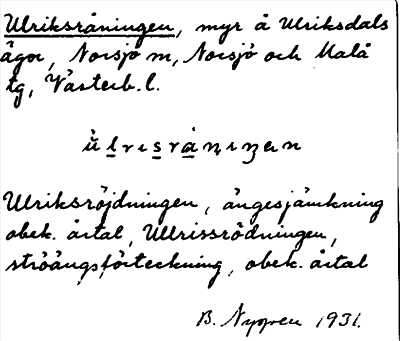 Ulriksråningen, myr å Ulriksdals
ägor, Norsjö sn, Norsjö och Malå
tg, Västerb. l.
Ulriksröjdningen, ängesjämkning
obek. årtal, Ullrissrödningen,
ströängsförteckning, obek. årtal
B. Nygren 1931.